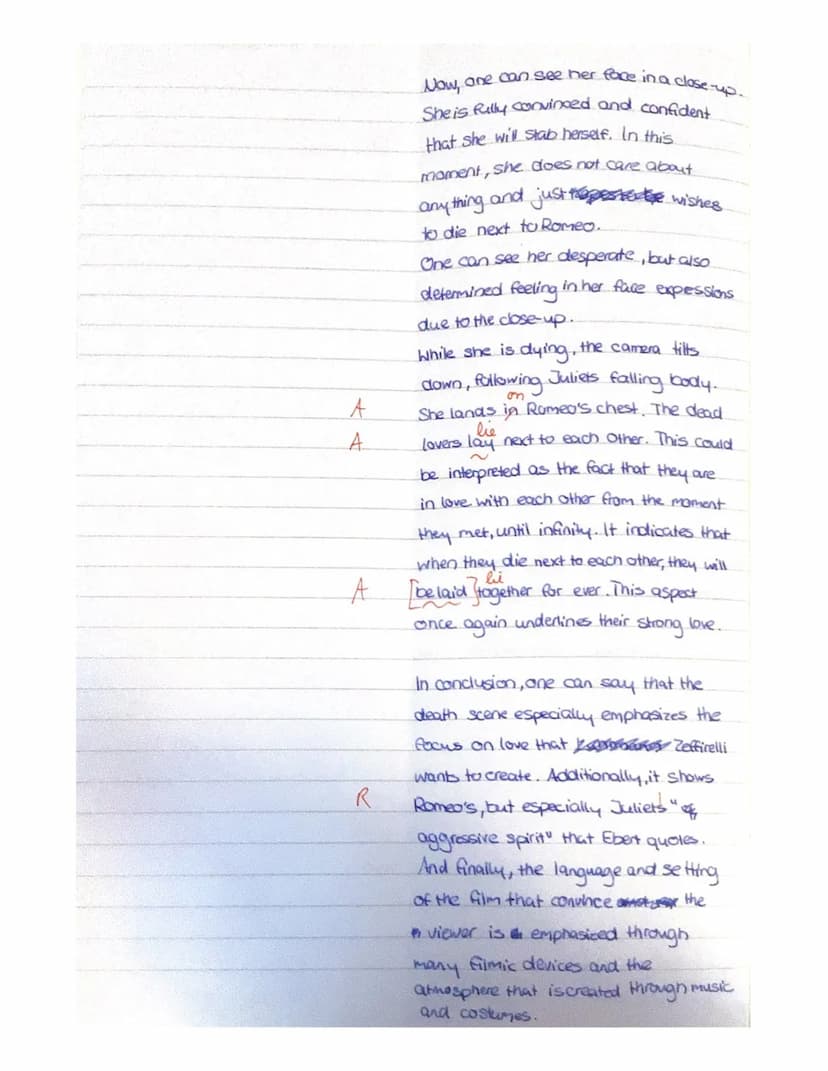 Now, one can see her face in a close-up.
She is fully convinced and confident
that she will stab herself. In this
moment, she does not care about
anything and just wishes
to die next to Romeo.
One can see her desperate, but also
determined feeling in her face expessions
due to the close-up.
While she is dying, the camera tilts
down, following Juliets falling body.
on
A She lands in Romeo's chest. The dead
lie
A lovers lay next to each other. This could
be interpreted as the fact that they are
in love with each other from the moment
they met, until infinity. It indicates that
when they die next to each other, they will
lie
A [be laid] together for ever. This aspect
once again underlines their strong love.
In conclusion, one can say that the
death scene especially emphasizes the
focus on love that Zeffirelli
wants to create. Additionally, it shows
R Romeo's, but especially Juliet's "of
aggressive spirit" that Ebert quotes.
And finally, the language and setting
of the film that convince the
viewer is emphasized through
many filmic devices and the
atmosphere that is created through music
and costumes.